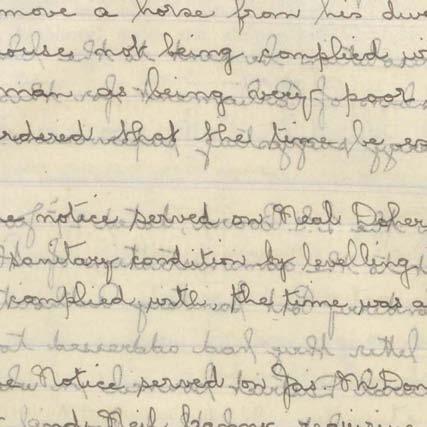 move a horse from his dwe
notice not being complied wi
man as being very poor
rdered that the time be ex
e notice served on Neal Doher
sanitary condition by levelling
complied with, the time was a
e Notice served on Jas. McDon